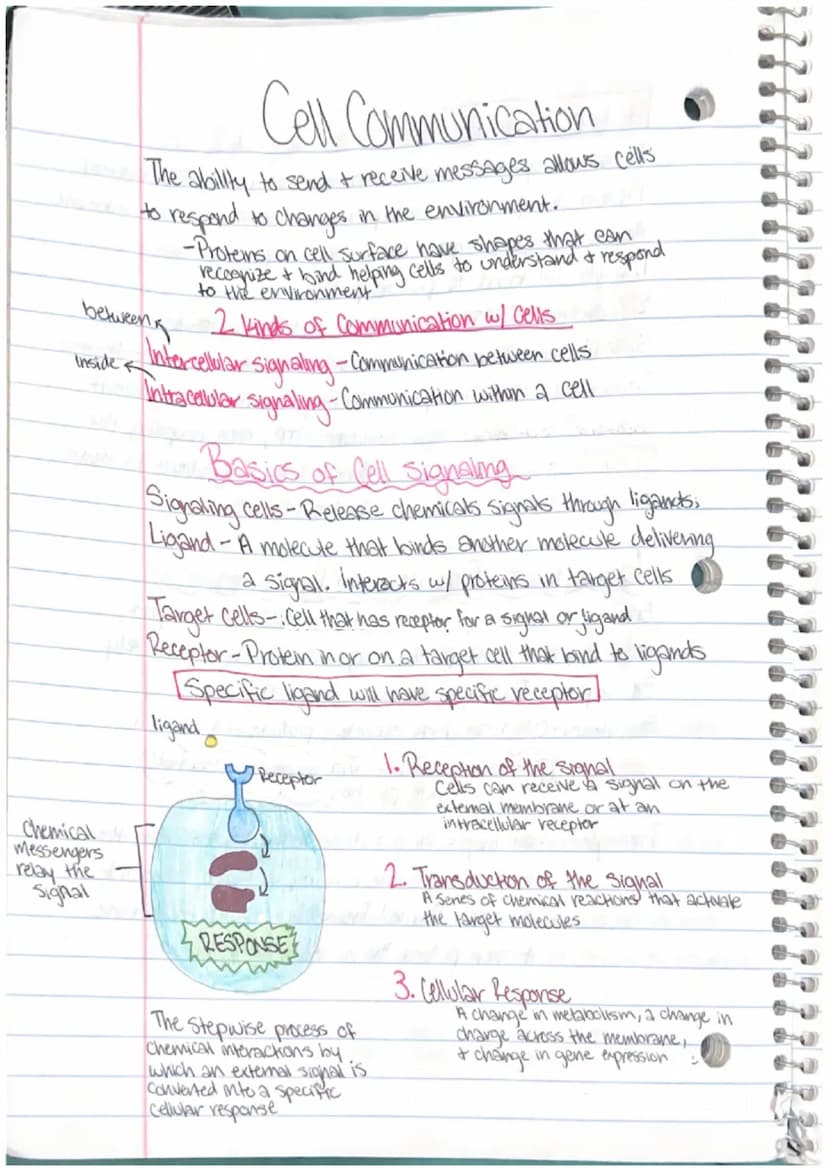 Cell Communication
The abillty to send + receive messages allows cells
to respond to changes in the environment.
-Proteins on cell surface have shapes that can
recognize + bind helping cells to understand + respond
to the environment
between
2 Kinds of Communication w/ Cells
Intercellular signaling - Communication between cells
inside
Intracellular signaling - Communication within a cell
Basics of Cell Signaling
Signaling cells - Release chemicals signals through ligands.
Ligand - A molecule that binds another molecule delivering
a signal. Interacts w/ proteins in target cells
Target cells - Cell that has receptor for a signal or ligand
Receptor - Protein in or on a target cell that bind to ligands
Specific ligand will have specific receptor
ligand
Receptor
Chemical
messengers
relay the
signal
RESPONSE
The stepwise process of
chemical interactions by
which an external signal is
converted into a specific
cellular response
1. Reception of the signal
Cells can receive a signal on the
external membrane or at an
intracellular receptor
2. Transduction of the signal
A series of chemical reactions that activate
the target molecules
3. Cellular Response
A change in metabolism, a change in
charge across the membrane,
+ change in gene expression